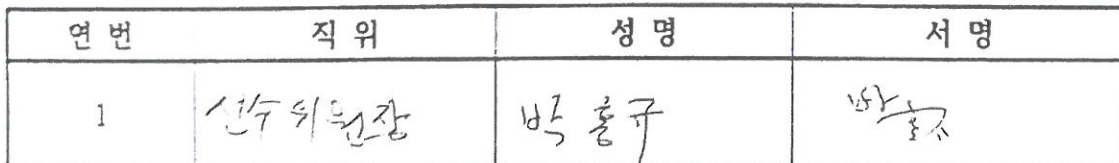 연번 직위 성명 서명
1 선수위원장 박홍규